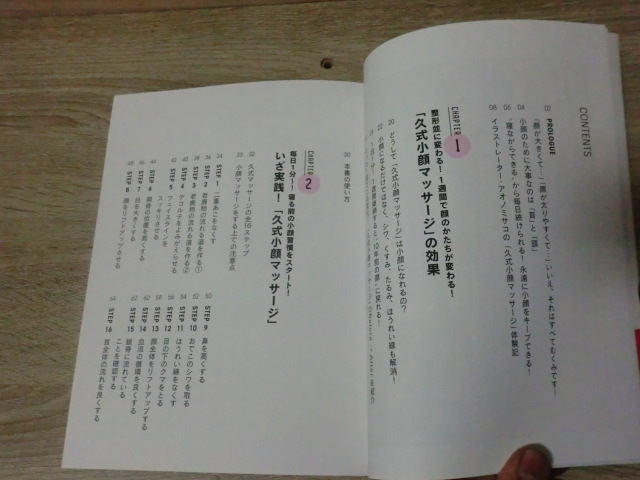 CONTENTS
02 PROLOGUE
「顔が大きくて…」「顔が太りやすくて…」いいえ、それはすべてむくみです！
04 小顔のために大事なのは「耳」と「鎖」
06 “寝ながらできる”から毎日続けられる！ 永遠に小顔をキープできる！
08 イラストレーター・アオノミサコの「久式小顔マッサージ」体験記
CHAPTER 1
整形並に変わる！ 1週間で顔のかたちが変わる！
「久式小顔マッサージ」の効果
20 どうして「久式小顔マッサージ」は小顔になれるの？
22 小顔になるだけではなく、シワ、くすみ、たるみ、ほうれい線も解消！
30 本書の使い方
CHAPTER 2
毎日1分！！ 寝る前の小顔習慣をスタート！
いざ実践！「久式小顔マッサージ」
32 久式マッサージの全16ステップ
33 小顔マッサージをする上での注意点
34 STEP 1 二重あごをなくす
36 STEP 2 老廃物の流れる道を作る①
38 STEP 3 老廃物の流れる道を作る②
STEP 4 デコルテをよみがえらせる
42 STEP 5 フェイスラインをスッキリさせる
44 STEP 6 頬骨の位置を高くする
STEP 7 目を大きくする
48 STEP 8 顔をリフトアップさせる
50 STEP 9 鼻を高くする
52 STEP 10 おでこのシワを取る
54 STEP 11 ほうれい線をなくす
56 STEP 12 目の下のクマをとる
58 STEP 13 顔全体をリフトアップする
60 STEP 14 血流の循環を良くする
62 STEP 15 鎖骨に流れていることを確認する
64 STEP 16 首全体の流れを良くする